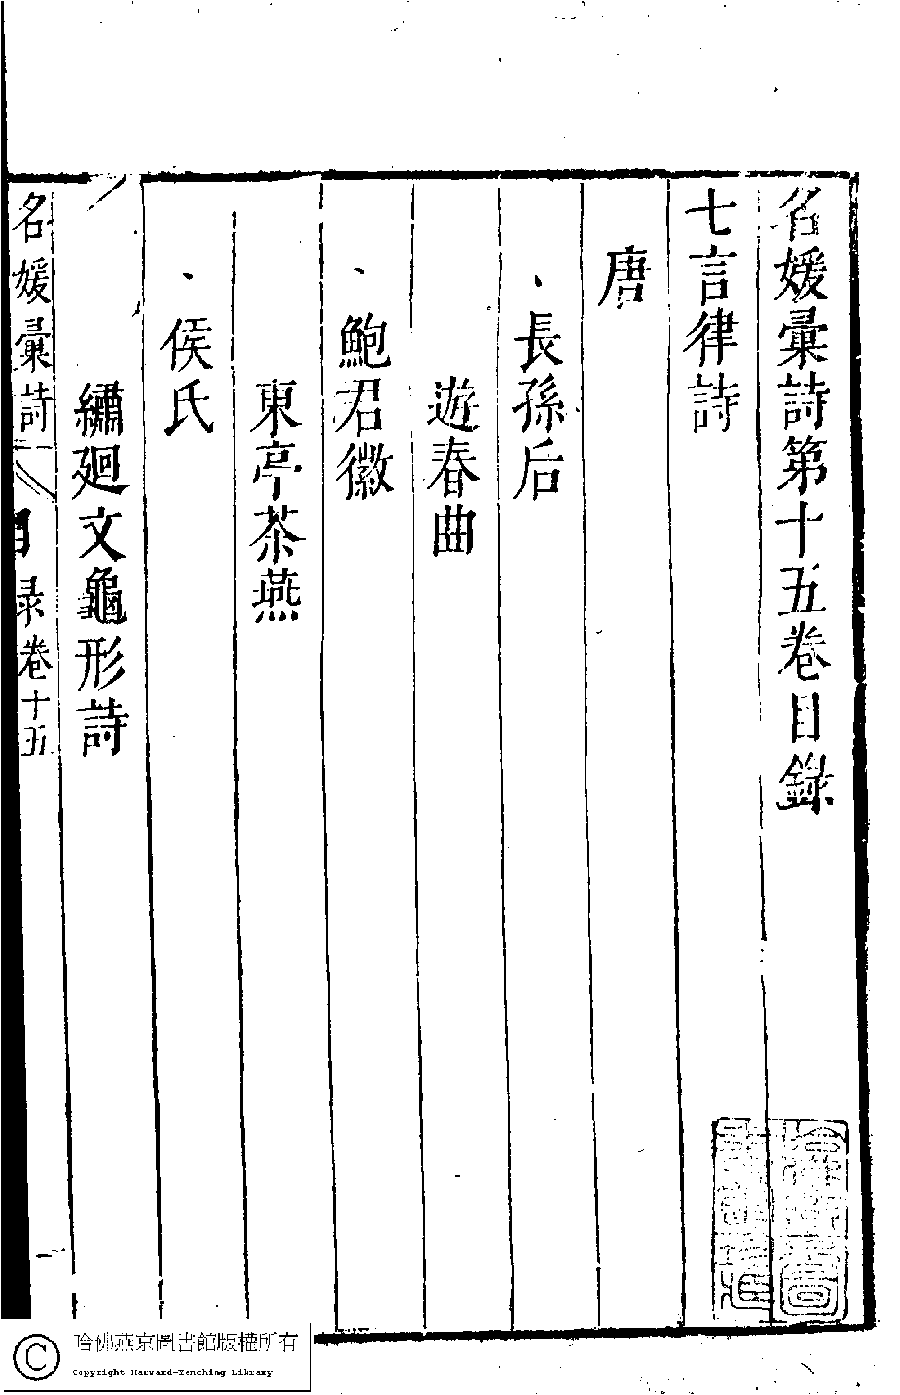 名媛彙詩第十五卷目録
七言律詩
唐
長孫后
遊春曲
鮑君徽
東亭茶燕
侯氏
繡廻文龜形詩
名媛彙詩 目録卷十五 一
哈佛燕京圖書館版權所有
Copyright Harvard-Yenching Library